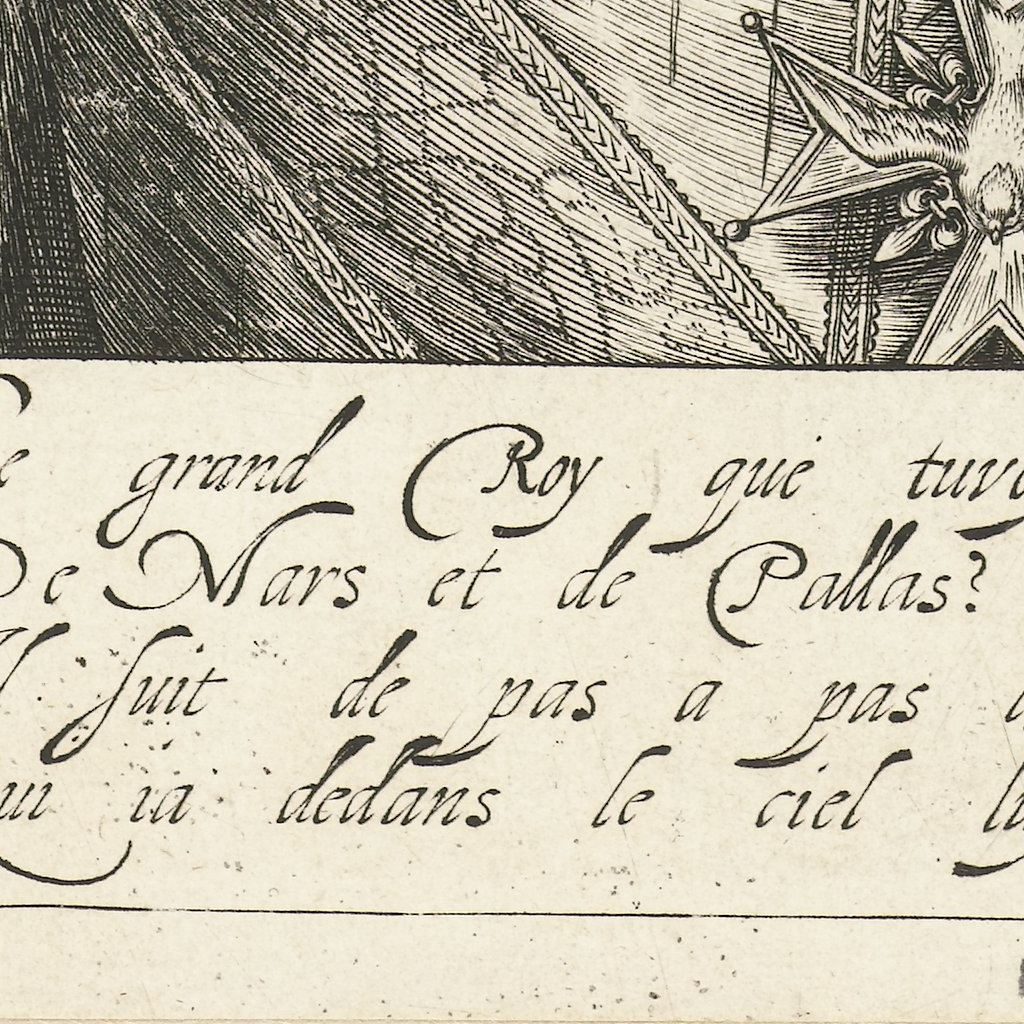 grand Roy que
De Mars et de Pallas?
Il ſuit de pas a pas
ui ia dedans le ciel